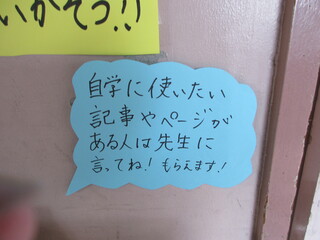 いかそう!!
自学に使いたい
記事やページが
ある人は先生に
言ってね！もらえます！